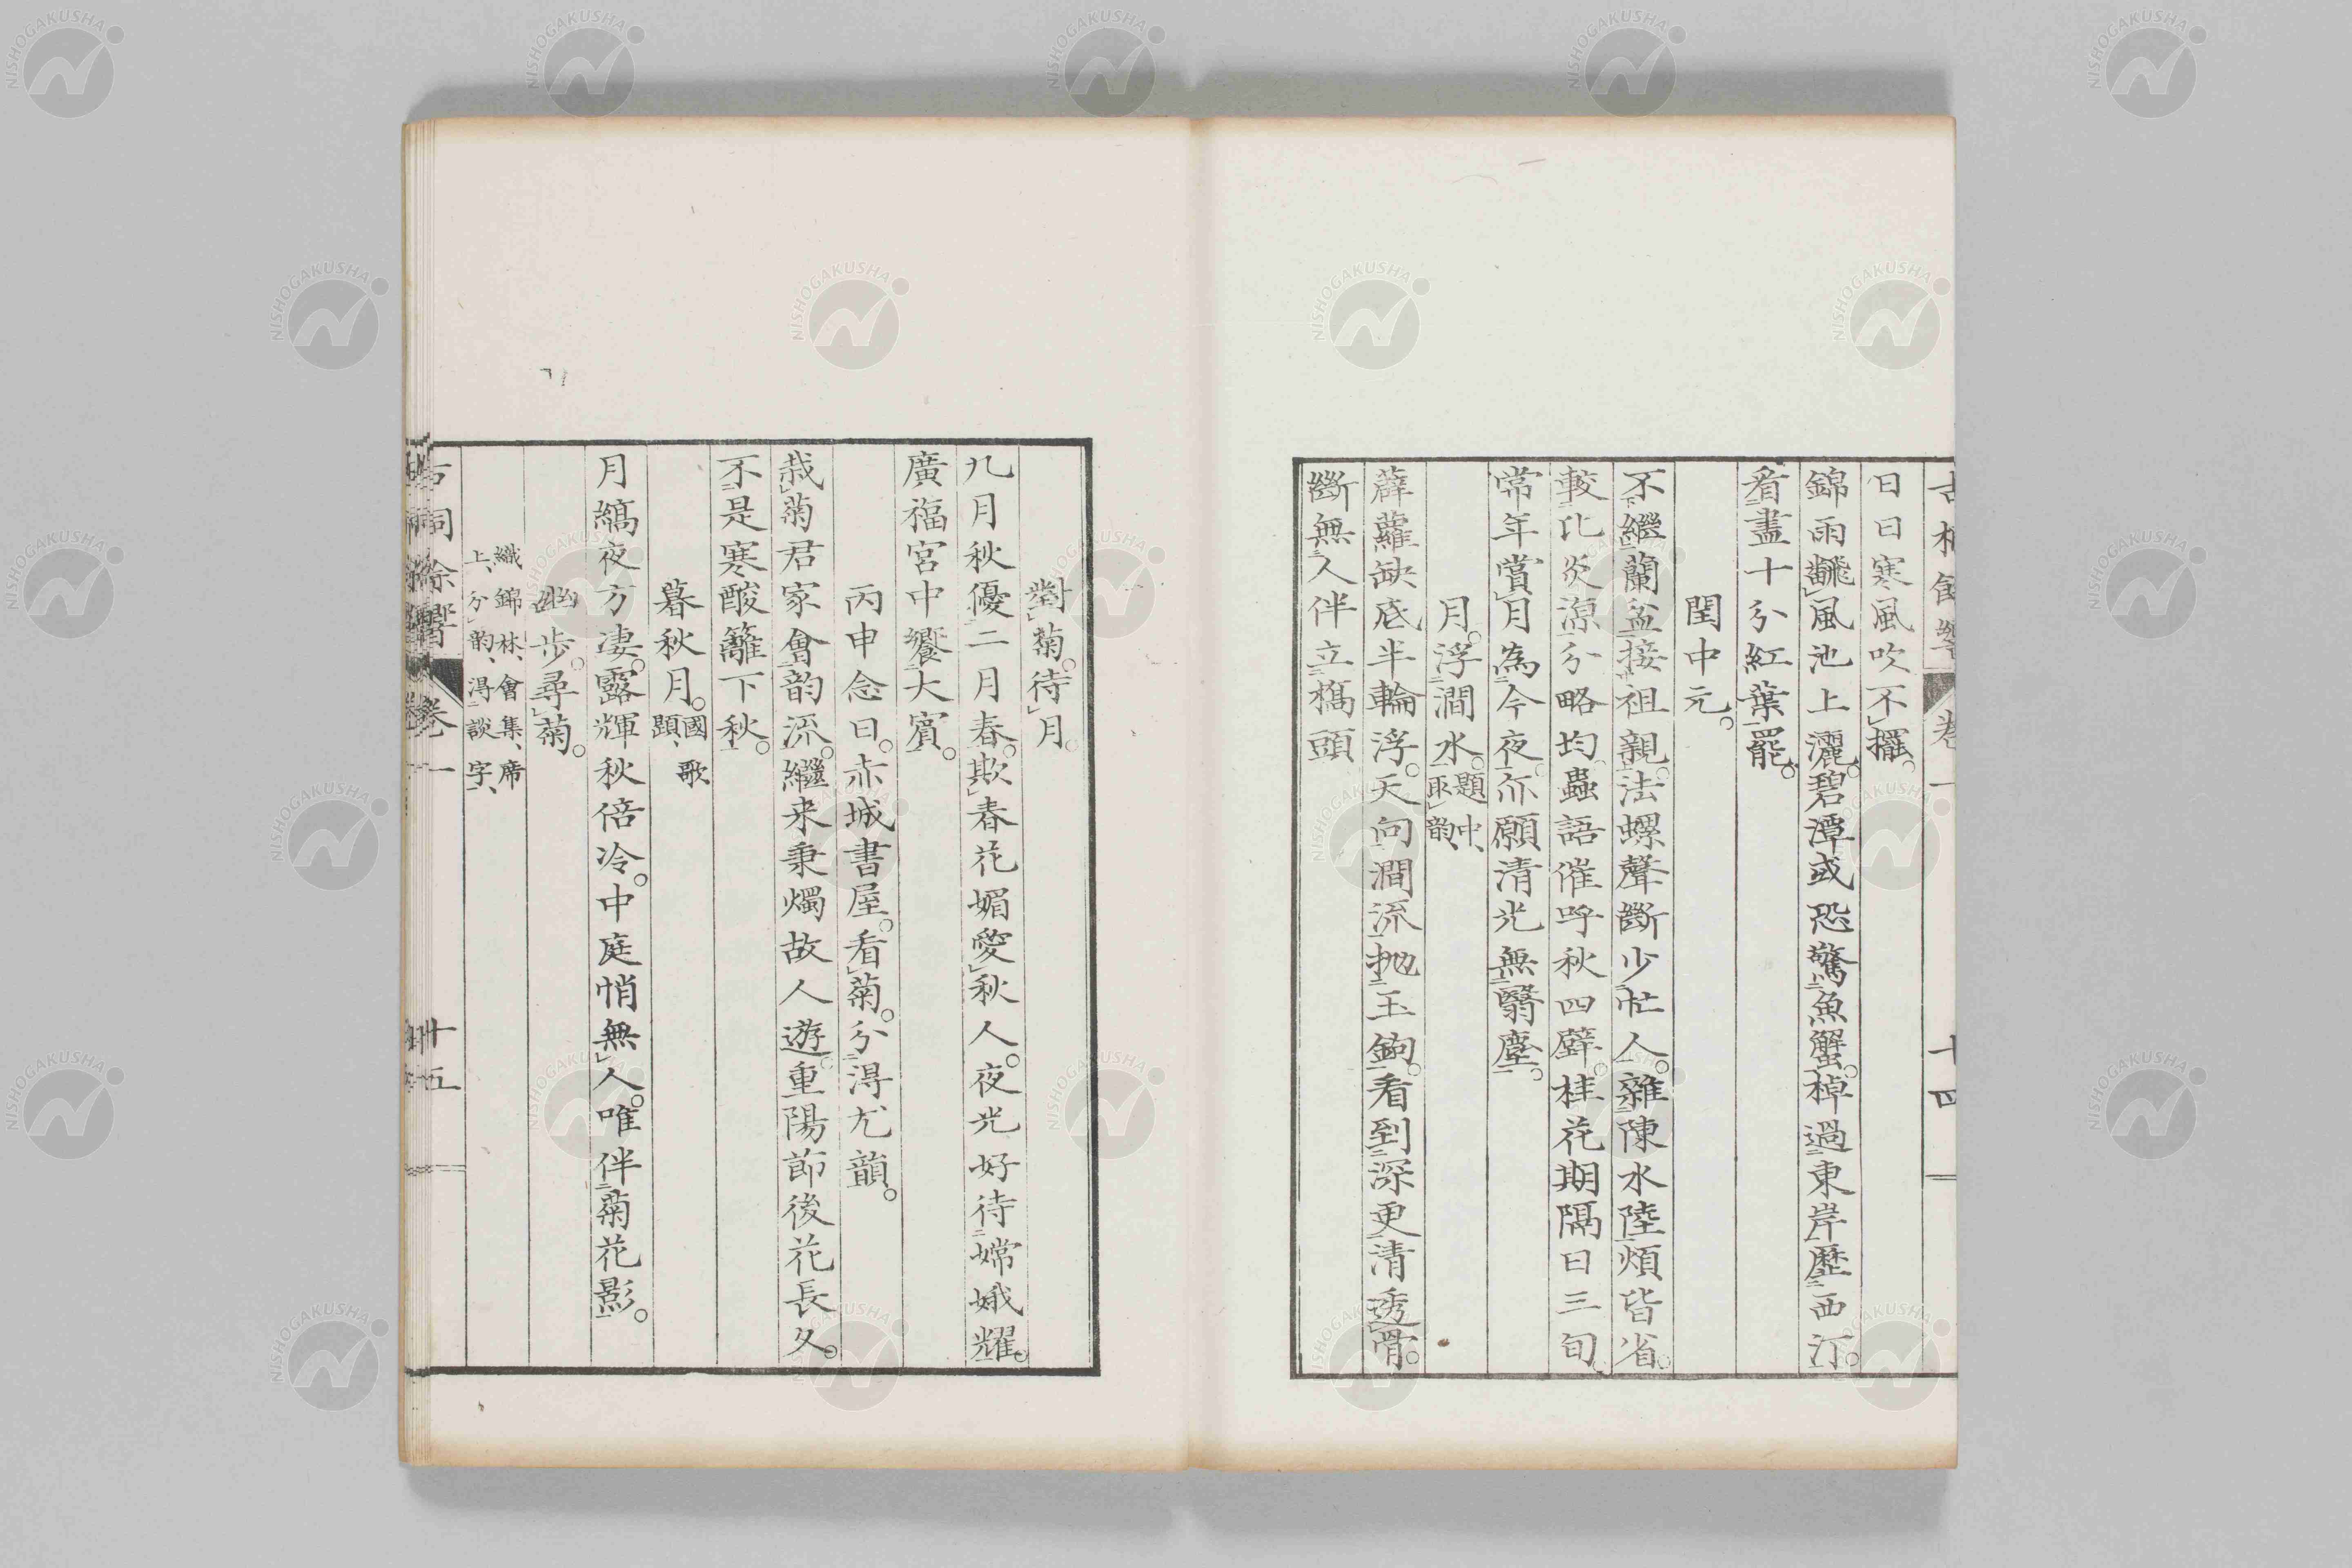 日日寒風吹不擺。
錦雨飜風池上灑。碧潭或恐驚魚蟹。棹過東岸歷西汀。
看盡十分紅葉罷。
閏中元。
不繼蘭盆接祖親。法螺聲斷少忙人。雜陳水陸煩皆省。
較比炎凉分略均。蟲語催呼秋四壁。桂花期隔日三旬。
常年嘗月為今夜。亦願清光無翳塵。
月浮澗水。題中取韵、
薜蘿缺底半輪浮。天向澗流抛玉鉤。看到深更清透骨。
斷無人伴立橋頭
十四
對菊。待月。
九月秋優二月春。欺春花媚愛秋人。夜光好待嫦娥耀。
廣福宮中饗大賓。
丙申念日。赤城書屋。看菊。分得尤韻。
栽菊君家會韵流。繼来秉燭故人遊。重陽節後花長久。
不是寒酸籬下秋。
暮秋月。國歌題、
月縞夜方凄。露輝秋倍冷。中庭悄無人。唯伴菊花影。
幽步。尋菊。
織錦林、會集、席上、分韵、得談字、
卷一 十五
NISHOGAKUSHA